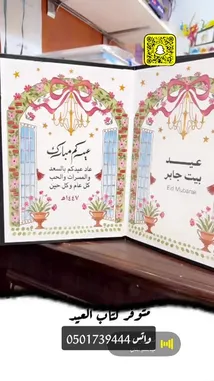 عيدكم مبارك
عاد عيدكم بالسعد
والمسرات والحب
كل عام وكل حين
١٤٤٧هـ
عيد
بيت جابر
Eid Mubarak
متوفر كتاب العيد
واتس 0501739444